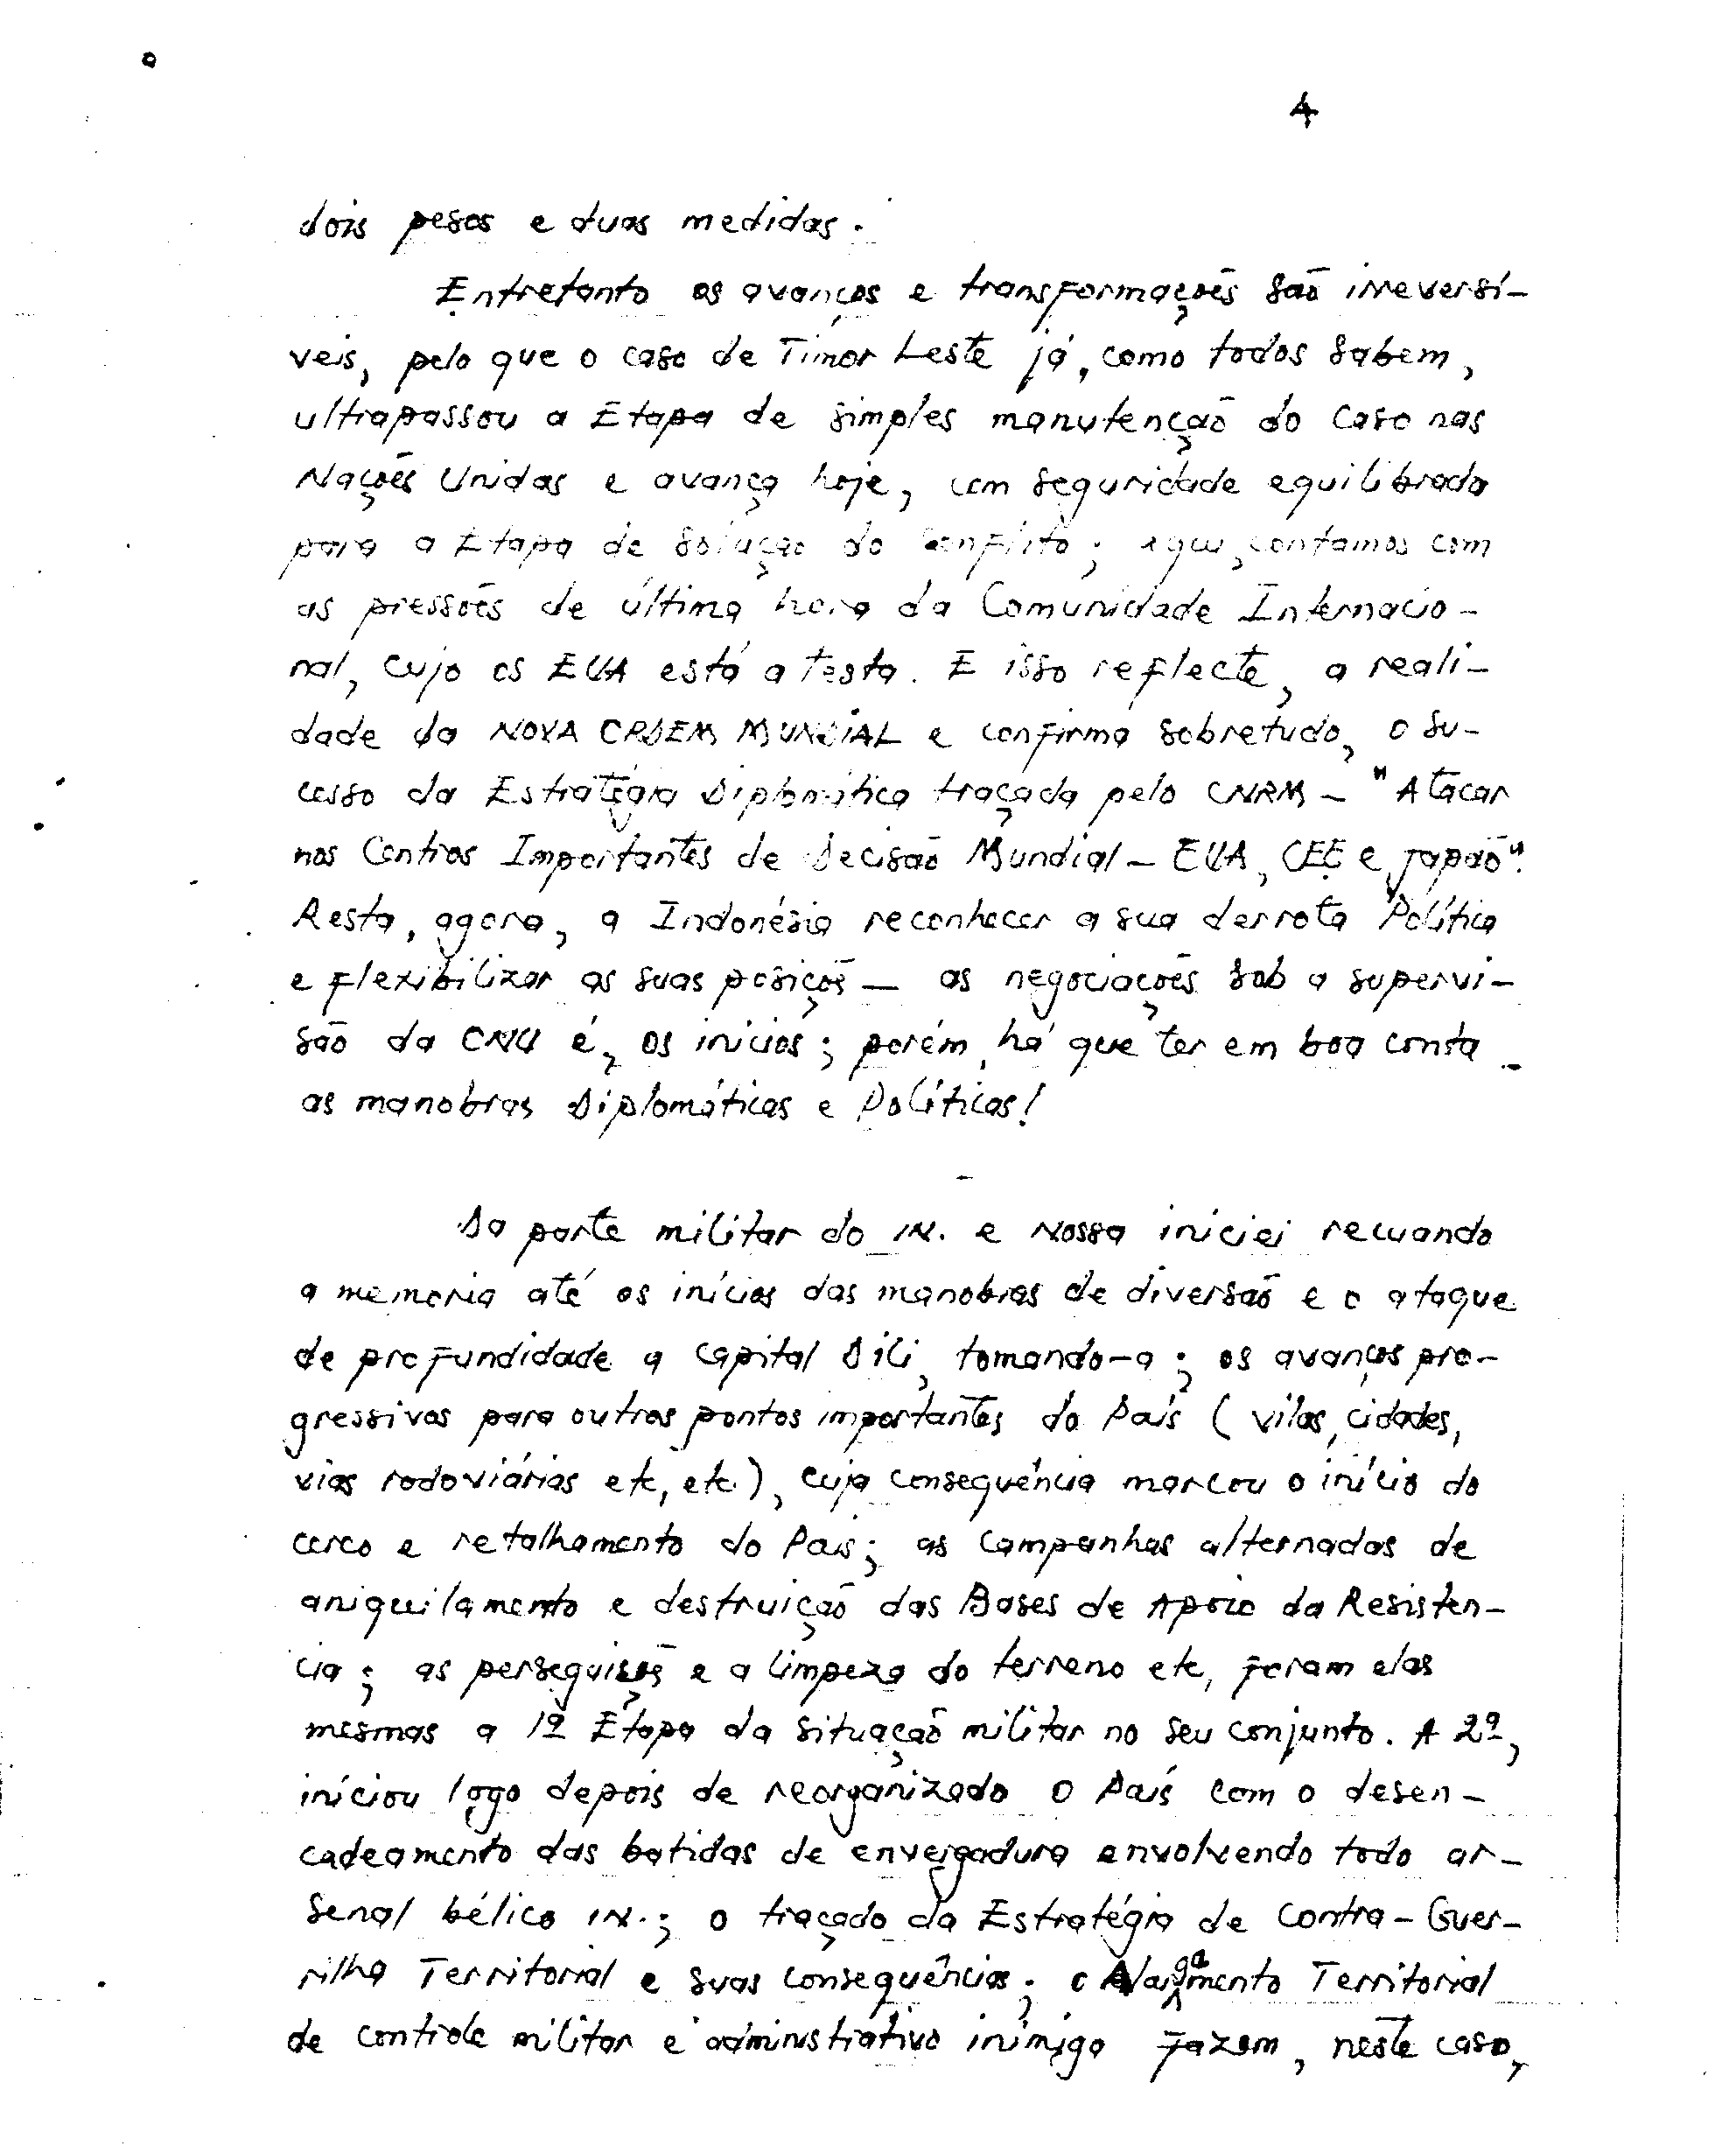 4
dois pesos e duas medidas.
Entretanto os avanços e transformações são irreversí-
veis, pelo que o caso de Timor Leste já, como todos sabem,
ultrapassou a Etapa de simples manutenção do Caso nas
Nações Unidas e avança hoje, com seguridade equilibrada
para a Etapa de solução do Conflito; aqui, contamos com
as pressões de última hora da Comunidade Internacio-
nal, cujo os EUA está a testa. E isso reflecte, a reali-
dade da NOVA ORDEM MUNDIAL e confirma sobretudo, o su-
cesso da Estratégia Diplomática traçada pelo CNRM - "Atacar
nos Centros Importantes de Decisão Mundial - EUA, CEE e Japão".
Resta, agora, a Indonésia reconhecer a sua derrota Política
e flexibilizar as suas posições - as negociações sob a supervi-
são da ONU é, os inícios; porém, há que ter em boa conta
as manobras Diplomáticas e Políticas!
Da parte militar do IN. e Nossa iniciei recuando
a memória até os inícios das manobras de diversão e o ataque
de profundidade a capital Dili, tomando-a; os avanços pro-
gressivos para outros pontos importantes do País (vilas, cidades,
vias rodoviárias etc, etc.), cuja consequência marcou o início do
cerco e retalhamento do País; as campanhas alternadas de
aniquilamento e destruição das Bases de Apoio da Resistên-
cia; as perseguições e a limpeza do terreno etc, foram elas
mesmas a 1ª Etapa da situação militar no seu conjunto. A 2ª,
iníciou logo depois de reorganizado o País com o desen-
cadeamento das batidas de envergadura envolvendo todo ar-
senal bélico IN.; o traçado da Estratégia de Contra-Guer-
rilha Territorial e suas consequências; o Alargamento Territorial
de controle militar e administrativo inimigo fazem, neste caso,